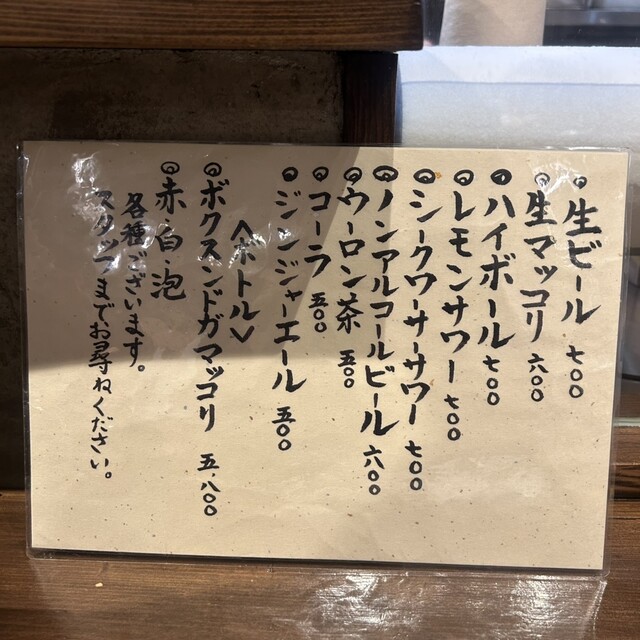 ◉生ビール 七〇〇
◉生マッコリ 六〇〇
◉ハイボール 七〇〇
◉レモンサワー 七〇〇
◉シークワーサーサワー 七〇〇
◉ノンアルコールビール 六〇〇
◉ウーロン茶 五〇〇
◉コーラ 五〇〇
◉ジンジャーエール 五〇〇
<ボトル>
◉ボクスンドガマッコリ 五,八〇〇
◉赤白泡
各種ございます。
スタッフまでお尋ねください。